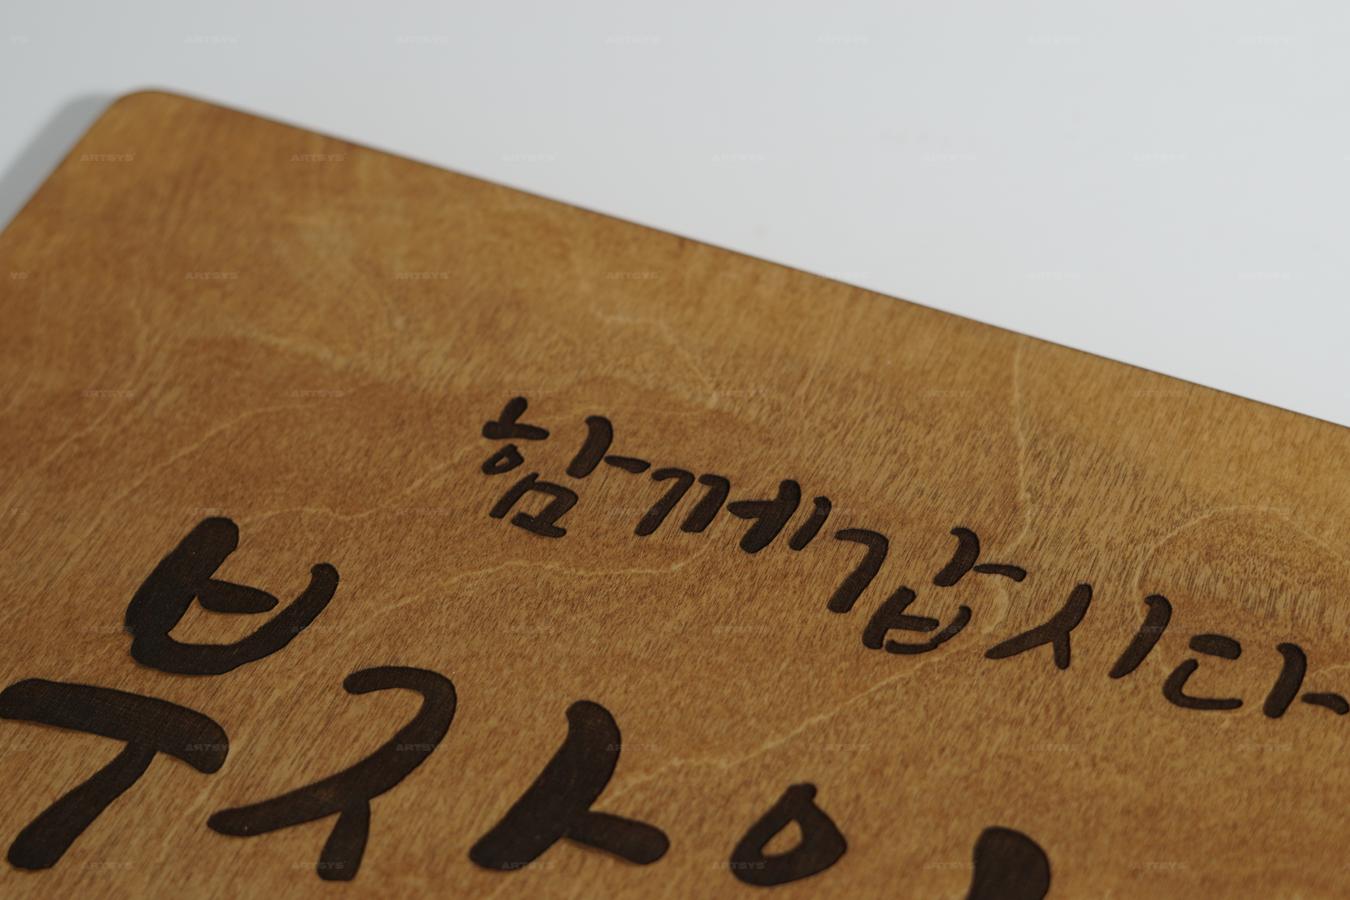 함께갑시다
부자
ARTSYS